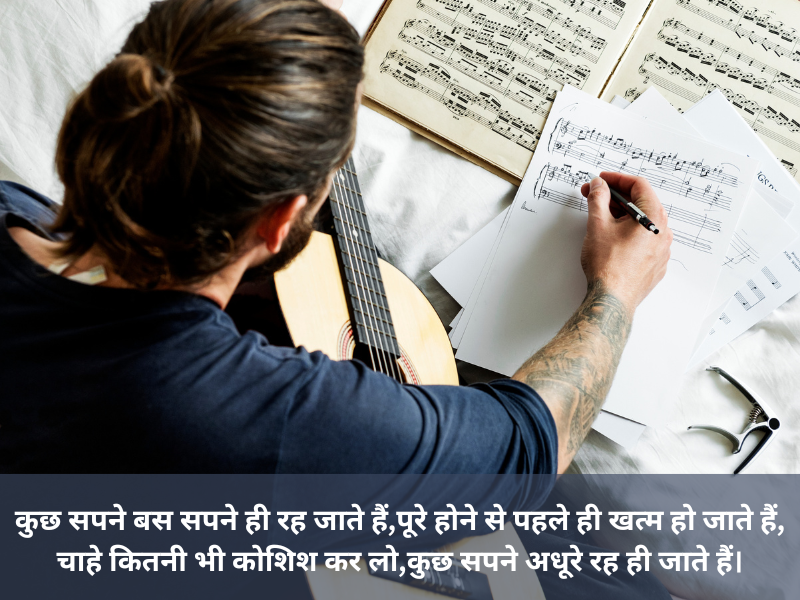 कुछ सपने बस सपने ही रह जाते हैं,पूरे होने से पहले ही खत्म हो जाते हैं,
चाहे कितनी भी कोशिश कर लो,कुछ सपने अधूरे रह ही जाते हैं।